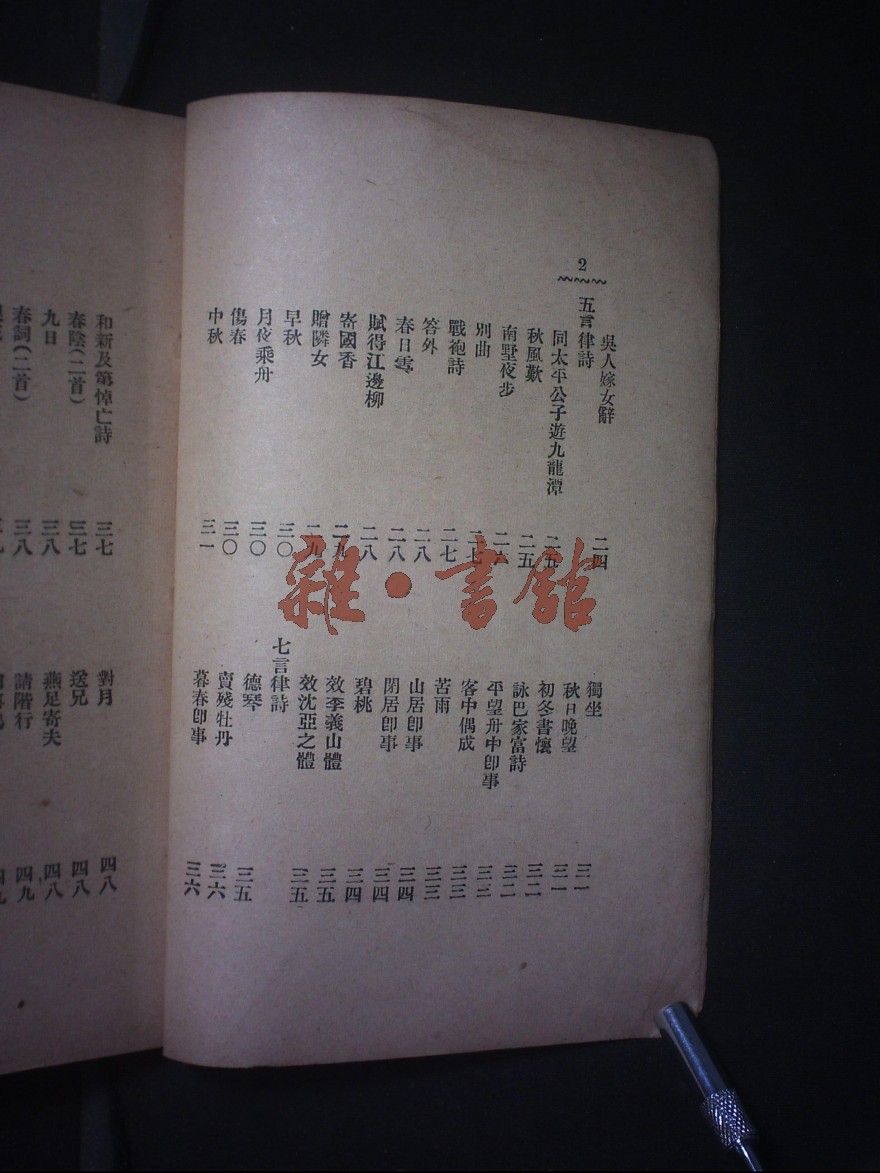 2
吳人嫁女辭 二四
五言律詩
同太平公子遊九龍潭 二五
秋風歎 二五
南墅夜步
別曲 二七
戰袍詩 二七
答外 二八
春日雪 二八
賦得江邊柳 二八
寄國香 二九
贈隣女 二九
早秋 三〇
月夜乘舟 三〇
傷春 三〇
中秋 三一
獨坐 三一
秋日晚望 三一
初冬書懷 三二
詠巴家富詩 三二
平望舟中卽事
客中偶成 三三
苦雨 三三
山居卽事 三四
閉居卽事 三四
碧桃 三四
效李義山體 三五
效沈亞之體 三五
七言律詩
德琴 三五
賣殘牡丹 三六
暮春卽事 三六
和新及第悼亡詩 三七
春陰(二首) 三七
九日 三八
春詞(二首) 三八
對月 四八
送兄 四八
燕足寄夫 四八
請階行 四九
雜·書館